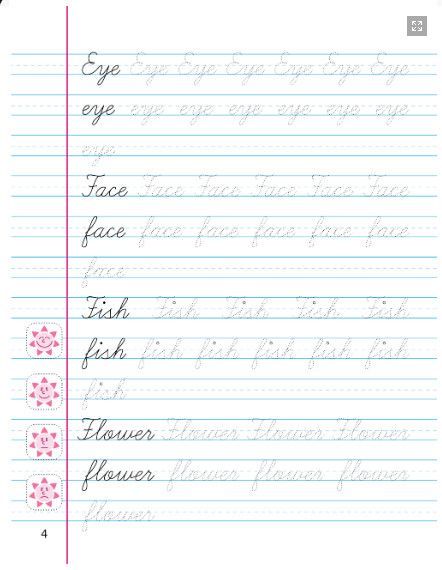 Eye Eye Eye Eye Eye Eye Eye
eye eye eye eye eye eye eye
eye
Face Face Face Face Face Face
face face face face face face
face
Fish Fish Fish Fish Fish
fish fish fish fish fish fish
fish
Flower Flower Flower Flower
flower flower flower flower
flower
4